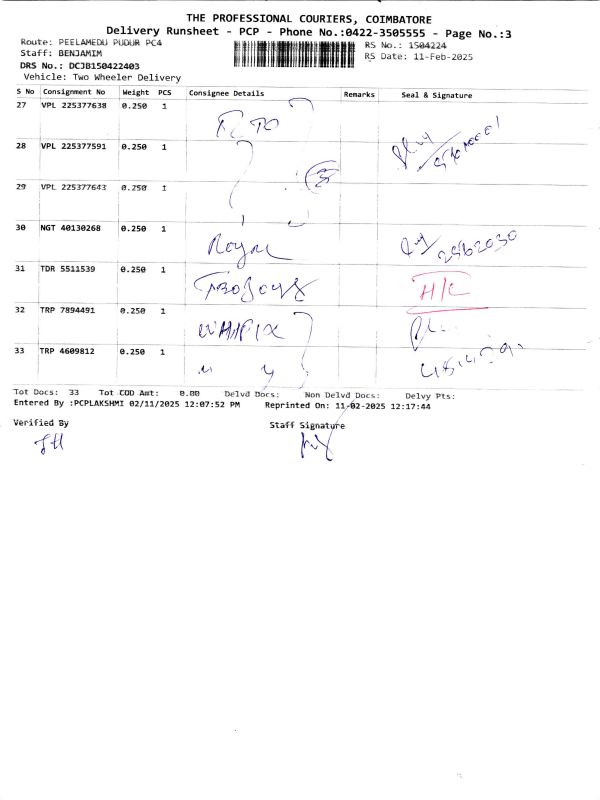 THE PROFESSIONAL COURIERS, COIMBATORE
Delivery Runsheet - PCP - Phone No.:0422-3505555 - Page No.:3
Route: PEELAMEDU PUDUR PC4
RS No.: 1504224
Staff: BENJAMIM
RS Date: 11-Feb-2025
DRS No.: DCJB150422403
Vehicle: Two Wheeler Delivery
S No Consignment No Weight PCS Consignee Details Remarks Seal & Signature
27 VPL 225377638 0.250 1
28 VPL 225377591 0.250 1
29 VPL 225377643 0.250 1
30 NGT 40130268 0.250 1
31 TDR 5511539 0.250 1 H/C
32 TRP 7894491 0.250 1
33 TRP 4609812 0.250 1 " "
Tot Docs: 33 Tot COD Amt: 0.00 Delvd Docs: Non Delvd Docs: Delvy Pts:
Entered By :PCPLAKSHMI 02/11/2025 12:07:52 PM Reprinted On: 11-02-2025 12:17:44
Verified By Staff Signature